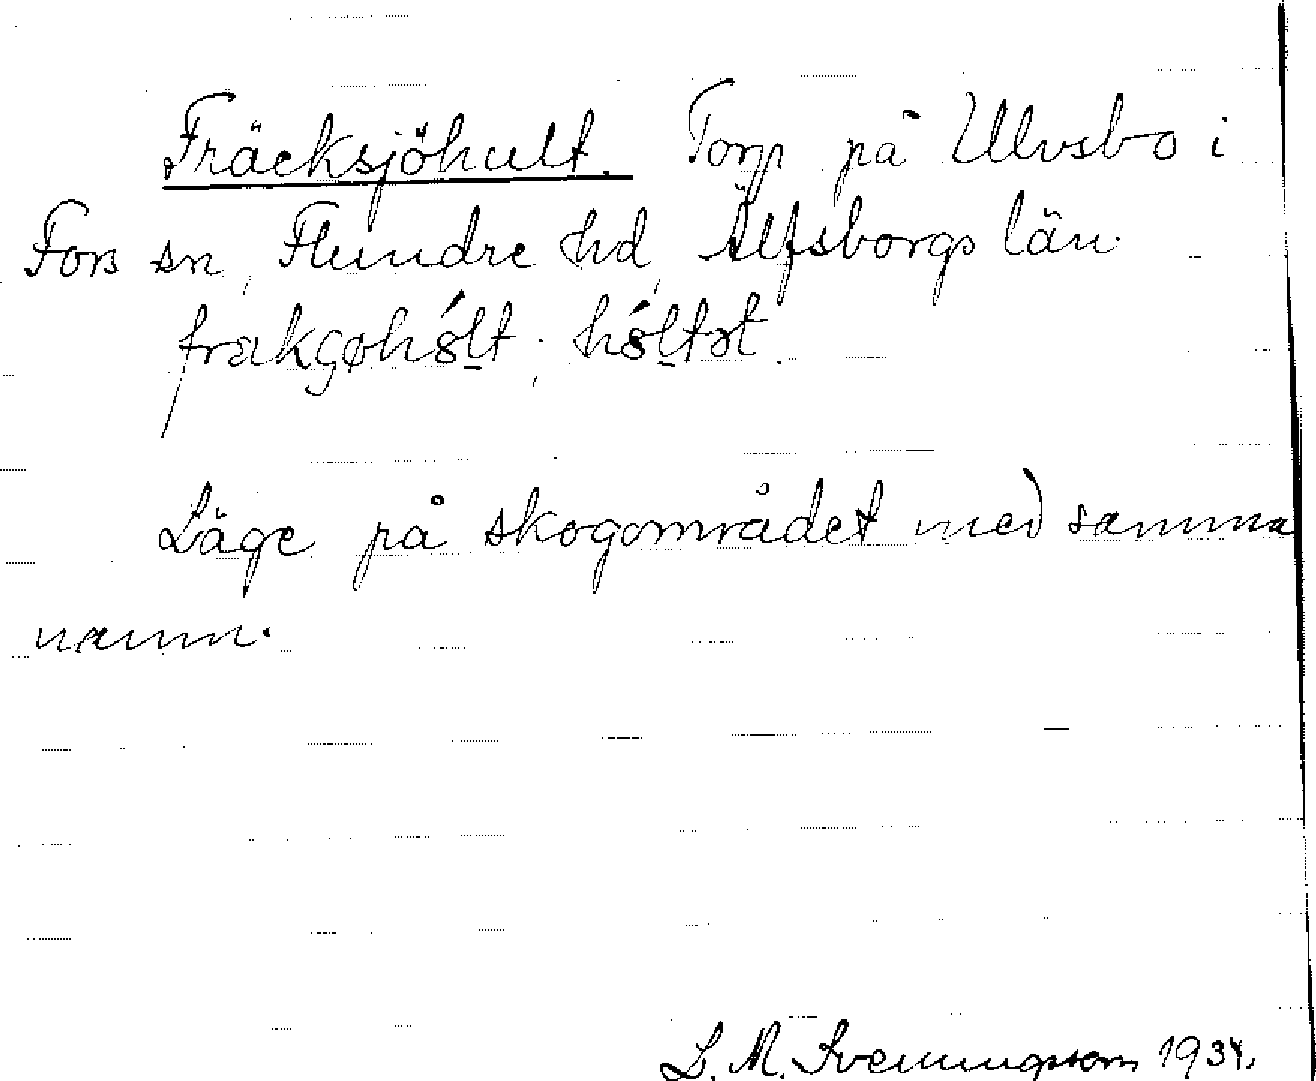 Fräcksjöhult. Torp på Ulvsbo i
Fors sn, Flundre hd, Älfsborgs län.
Läge på skogområdet med samma
namn.
L. M. Svenningsson 1934.